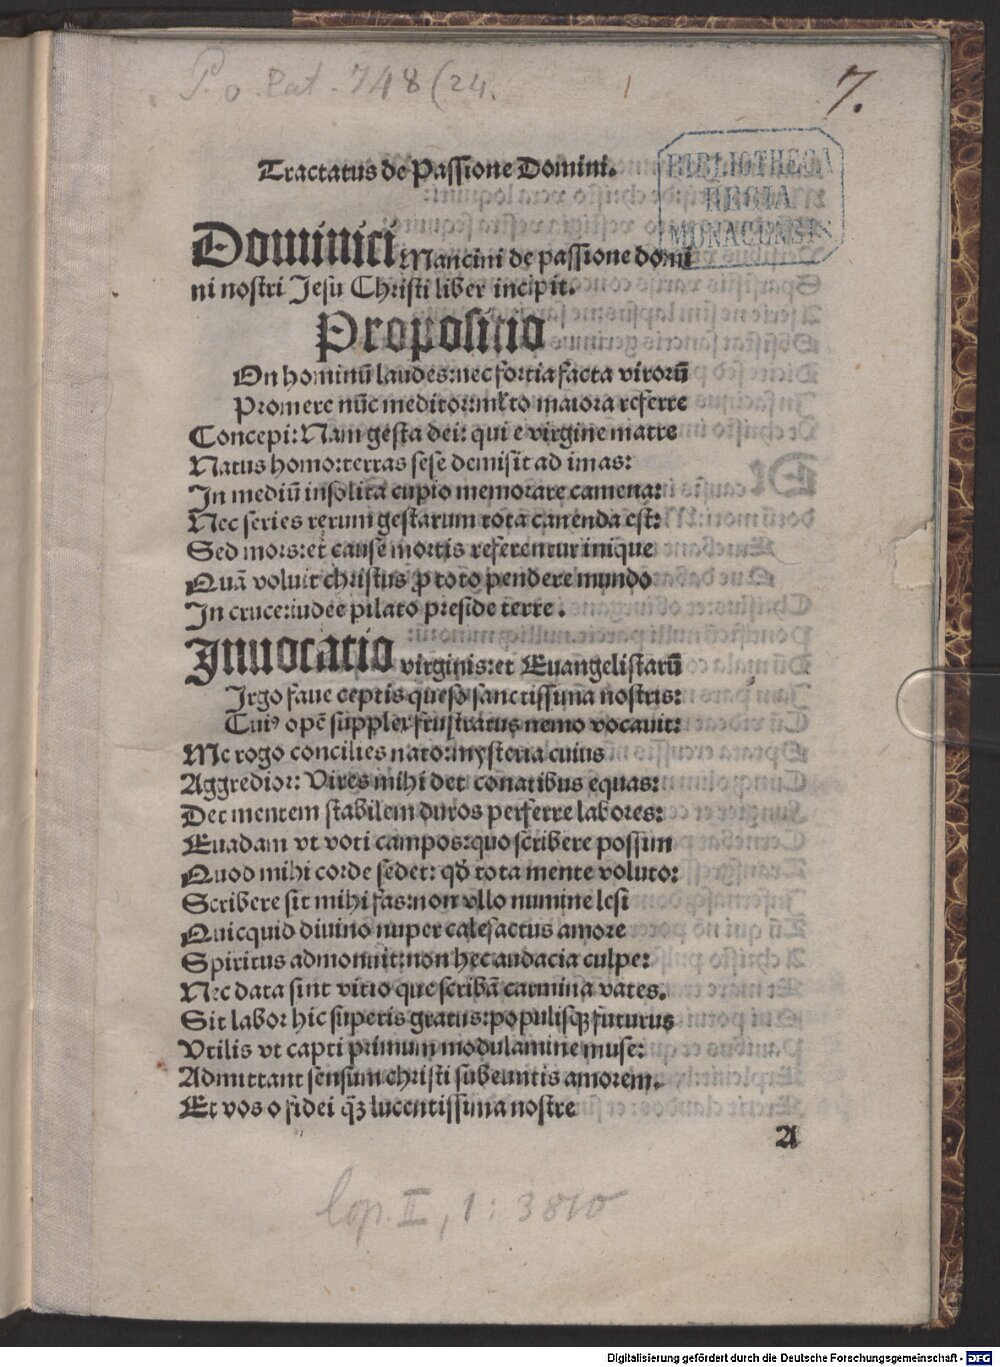 P. o. lat. 748 (24.
1
7.
BIBLIOTHECA
REGIA
MONACENSIS
Tractatus de Passione Domini.
Dominici Mancini de passione domi
ni nostri Jesu Christi liber incipit.
Propositio
On hominū laudes: nec fortia facta virorū
Promere nūc meditor: mlto maiora referre
Concepi: Nam gesta dei: qui e virgine matre
Natus homo: terras sese demisit ad imas:
In mediū insolita cupio memorare camena:
Nec series rerum gestarum tota canenda est:
Sed mors: et cause mortis referentur inique
Quā voluit christus ꝓ toto pendere mundo
In cruce: iudee pilato preside terre.
Inuocatio virginis: et Euangelistarū
Irgo faue ceptis queso sanctissima nostris:
Cuiꝰ opē supplex frustratus nemo vocauit:
Me rogo concilies nato: mysteria cuius
Aggredior: Vires mihi det conatibus equas:
Det mentem stabilem duros perferre labores:
Euadam vt voti campos: quo scribere possim
Quod mihi corde sedet: qđ tota mente voluto:
Scribere sit mihi fas: non vllo numine lesi
Quicquid diuino nuper calefactus amore
Spiritus admonuit: non hec audacia culpe:
Nec data sint vitio que scribā carmina vates.
Sit labor hic superis gratus: populisqꝫ futurus
Vtilis vt capti primum modulamine muse:
Admittant sensum christi subeuntis amorem.
Et vos o fidei qꝫ lucentissima nostre
A
Cop. II, 1: 3810
Digitalisierung gefördert durch die Deutsche Forschungsgemeinschaft - DFG